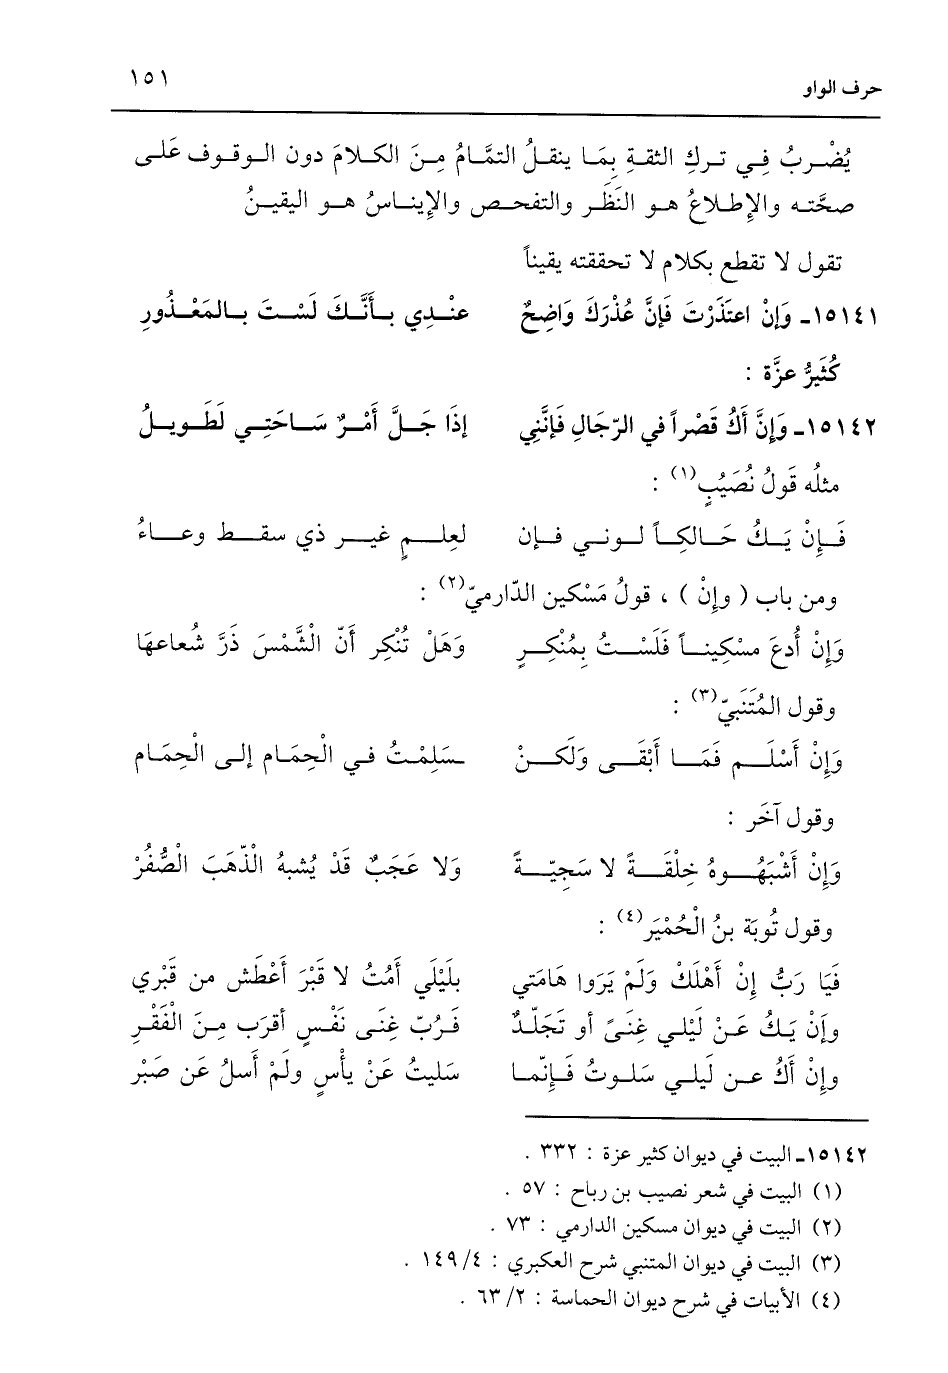 حرف الواو ١٥١
يُضْربُ فِي تركِ الثقةِ بِمَا ينقلُ التمَّامُ مِنَ الكلامَ دون الوقوف عَلى
صحَّته والإطلاعُ هو النَظَرِ والتفحص والإيناسُ هو اليقينُ
تقول لا تقطع بكلام لا تحققته يقيناً
١٥١٤١ـ وَإنْ اعتَذَرْتَ فَإنَّ عُذْرَكَ وَاضِحٌ عنْدِي بأَنَّكَ لَسْتَ بالمَعْذُورِ
كُثَيرُّ عزَّة :
١٥١٤٢ـ وَإنَّ أَكُ قَصْراً في الرّجَالِ فَإنَّنِي إذَا جَلَّ أَمْرٌ سَاحَتِي لَطَوِيلُ
مثلُه قَولُ نُصَيُبٍ(١) :
فَإنْ يَكُ حَالكِاً لوني فإن لعِلمٍ غير ذي سقط وعاءُ
ومن باب ( وإنْ ) ، قولُ مَسْكين الدّارميّ(٢) :
وَإنْ أُدعَ مسْكِيناً فَلَسْتُ بِمُنْكِرٍ وَهَلْ تُنْكِر أَنّ الْشَّمْسَ ذَرَّ شُعاعهَا
وقول المُتَنَبيّ(٣) :
وَإنْ أَسْلَم فَمَا أَبْقَى وَلَكنْ سَلِمْتُ في الْحِمَام إلى الْحِمَام
وقول آخَر :
وَإنْ أَشْبَهُوهُ خِلْقَةً لا سَجيّةً وَلا عَجَبٌ قَدْ يُشبهُ الْذّهَبَ الْصُّفُرْ
وقول تُوبَة بنُ الْحُمْيَر(٤) :
فَيَا رَبُّ إنْ أَهْلَكْ وَلَمْ يَرَوا هَامَتي بلَيْلَي أَمُتُ لا قَبْرَ أَعْطَش من قَبْري
وإَنْ يَكُ عَنْ لَيْلي غِنَىً أو تَجَلّدٌ فَرُبّ غِنَى نَفْسٍ أقرَب مِنَ الْفَقْرِ
وإنْ أَكُ عن لَيلي سَلوتُ فَإنّما سَليتُ عَنْ يأْسٍ ولَمْ أسلُ عَن صَبْر
١٥١٤٢ـ البيت في ديوان كثير عزة : ٣٣٢ .
(١) البيت في شعر نصيب بن رباح : ٥٧ .
(٢) البيت في ديوان مسكين الدارمي : ٧٣ .
(٣) البيت في ديوان المتنبي شرح العكبري : ٤/ ١٤٩ .
(٤) الأبيات في شرح ديوان الحماسة : ٢/ ٦٣ .